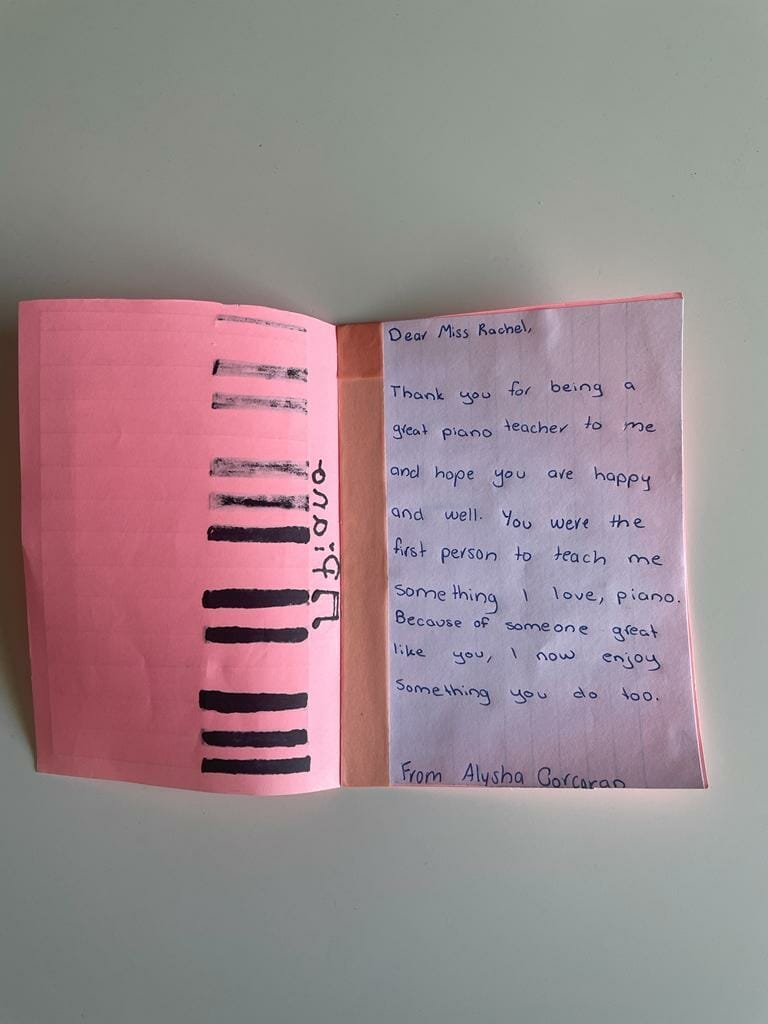 Dear Miss Rachel,
Thank you for being a
great piano teacher to me
and hope you are happy
and well. You were the
first person to teach me
something I love, piano.
Because of someone great
like you, I now enjoy
something you do too.
From Alysha Corcoran